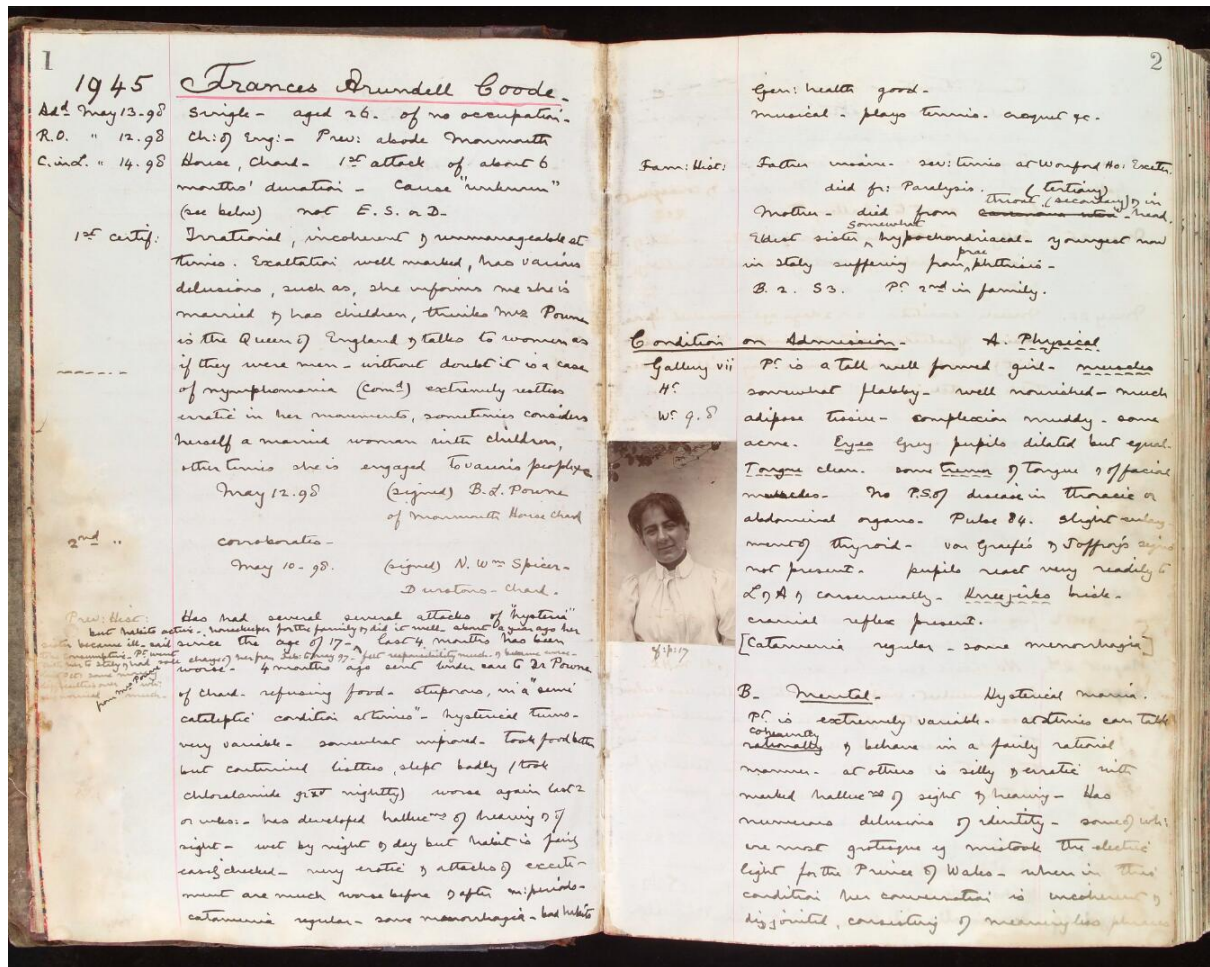 1
1945 Frances Arundell Coode -
Add May 13-98 Single - aged 26. of no occupation -
R.O. " 12.98 Ch: of Eng: - Prev: abode Monmouth
C. in L. " 14.98 House, Chard - 1st attack of about 6
months' duration - Cause "unknown"
(see below) not E. S. or D -
1st certif: Irrational, incoherent & unmanageable at
times. Exaltation well marked, has various
delusions, such as, she informs me she is
married & has children, thinks Mrs Powne
is the Queen of England & talks to women as
if they were men - without doubt it is a case
of nymphomania (Comd) extremely restless
erratic in her movements, sometimes considers
herself a married woman with children,
other times she is engaged to various people
May 12.98 (signed) B.L. Powne
of Monmouth House Chard
2nd " corroborates -
May 10-98. (signed) N. Wm Spicer -
Chard.
Prev: Hist: Has had several several attacks of "hysteria"
but habits active - housekeeper for the family & did it well - about a year ago her
sister became ill - since the age of 17 - last 4 months has been
felt responsibility much - & became worse -
worse - 4 months ago sent under care to Dr Powne
from Mrs Powne
of Chard - refusing food - stuporous, in a "semi
cataleptic condition at times" - hysterical turns -
very variable - somewhat improved - took food better
but continued listless, slept badly (took
chloralamide nightly) worse again last 2
or - has developed hallucns of hearing & of
sight - wet by night & day but habit is fairly
easily checked - very erotic & attacks of excite-
ment are much worse before & after m: periods -
catamenia regular - some menorrhagia - bad habits
2
Gen: health good -
musical - plays tennis - croquet &c -
Fam: Hist: Father insane - sev: times at Wonford Ho: Exeter
died fr: Paralysis. (tertiary)
throat (secondary) & in
Mother - died from head.
somewhat
Eldest sister hypochondriacal - youngest now
in Italy suffering from phthisis -
B. 2. S 3. Pt 2nd in family.
Condition on Admission - A. Physical
Gallery vii Pt is a tall well formed girl - muscles
Ht somewhat flabby - well nourished - much
Wt 9.8 adipose tissue - complexion muddy - some
acne - Eyes Grey pupils dilated but equal.
Tongue clean. some tremor of tongue & of facial
muscles - No P.S. of disease in thoracic or
abdominal organs - Pulse 84. slight enlarg
ment of thyroid - von Graefe's & Joffroy's signs
not present - pupils react very readily to
L & A & consensually - Kneejerks brisk -
cranial reflex present.
[Catamenia regular - some menorrhagia]
B - Mental - Hysterical mania.
Pt is extremely variable - at times can talk
coherently
rationally & behave in a fairly rational
manner - at others is silly & erratic with
marked hallucns of sight & hearing - Has
numerous delusions of identity - some of whi
are most grotesque eg mistook the electric
light for the Prince of Wales - when in this
condition her conversation is incoherent &
disjointed, consisting of meaningless phrases